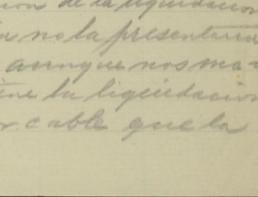 ion de la liquidacion
la no la presentaria
aunque nos ma
ene la liquidacion
or cable que la